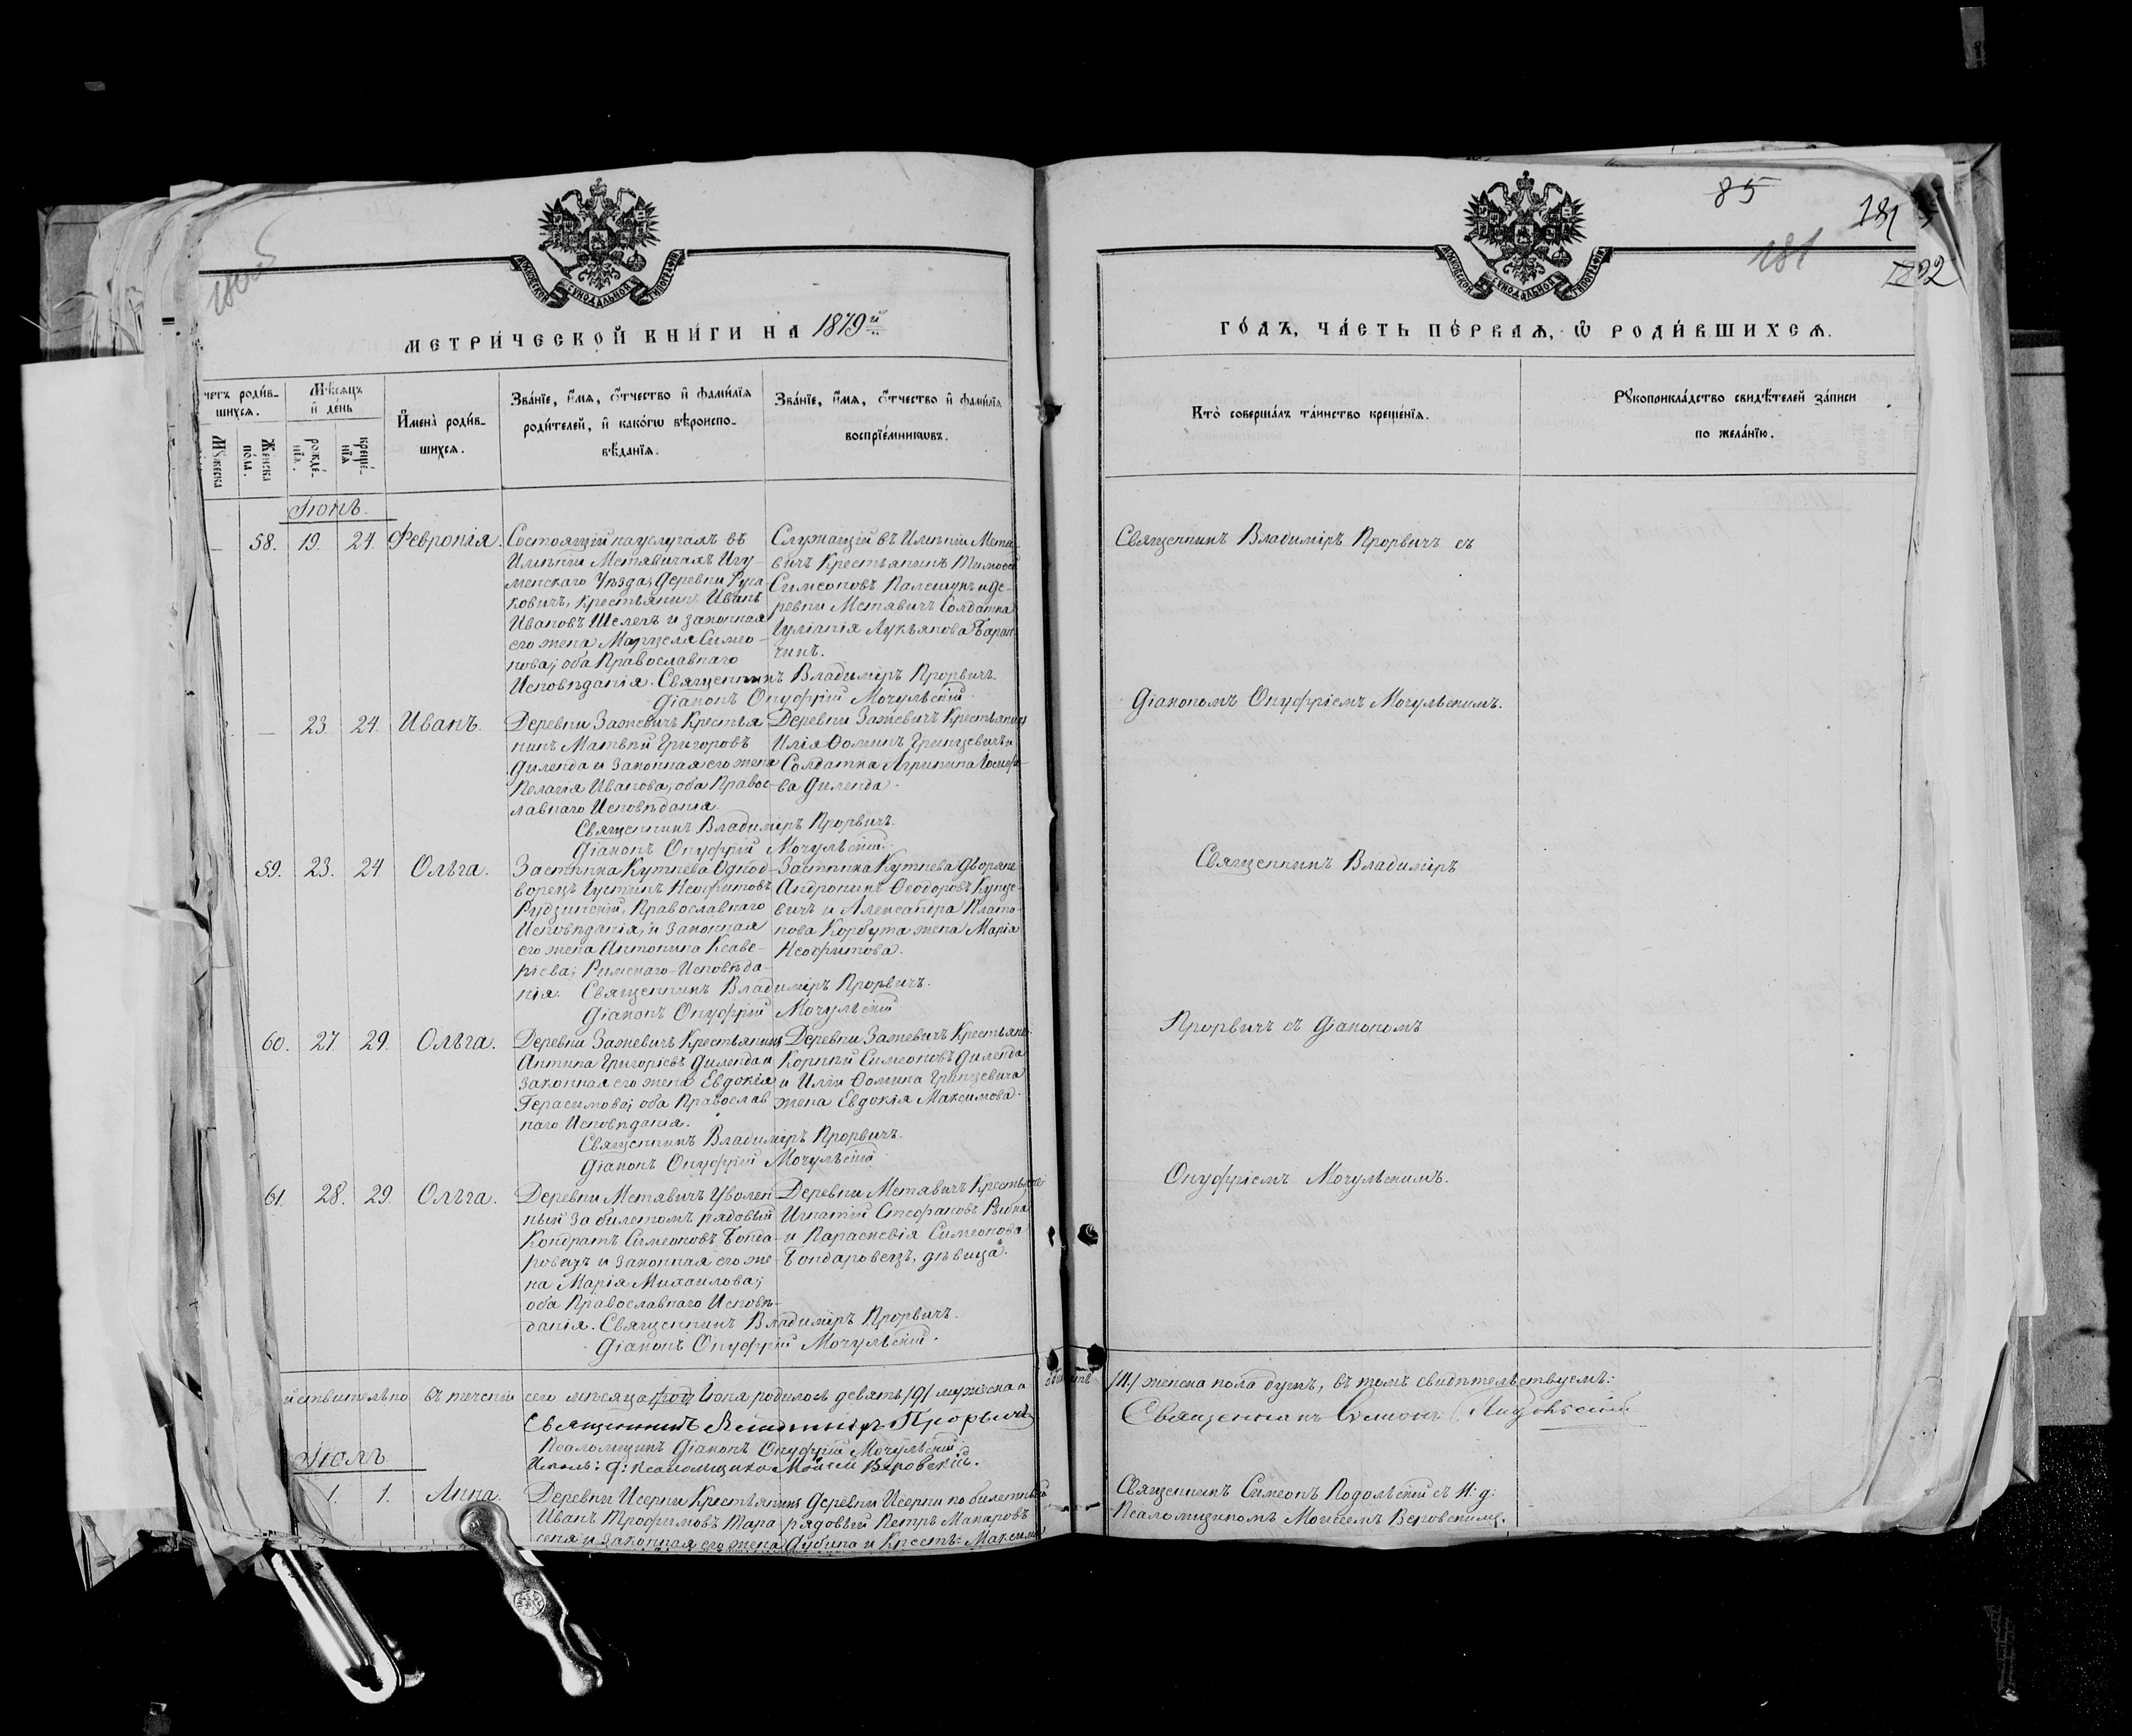 85
181
181
МОСКОВСКОЙ СѴНОДАЛЬНОЙ ТИПОГРАФІИ
МОСКОВСКОЙ СѴНОДАЛЬНОЙ ТИПОГРАФІИ
МЕТРИ́ЧЕСКОЙ КНИ́ГИ НА 1879й
ГО́ДЪ, ЧА́СТЬ ПЕ́РВАЯ, Ѡ РОДИ́ВШИХСЯ.
четъ роди́в-
шихся.
Мѣсяцъ
и҆ де́нь
И҆мена̀ роди́в-
шихся.
Зва́нїе, и҆́мя, ѻ҆́тчество и҆ фами́лїя
роди́телей, и҆ како́гѡ вѣроиспо-
вѣ́данїя.
Зва́нїе, и҆́мя, ѻ҆́тчество и҆ фами́лїя
воспрїе́мникѡвъ.
Кто̀ соверша́лъ та́инство креще́нїя.
Рꙋкоприкла́дство свидѣ́телей за́писи
по жела́нїю.
Мꙋ́жеска
Же́нска
по́ла.
рожде́-
нїя.
креще́-
нїя
Іюнь.
58. 19. 24. Февронія. Состоящій на услугахъ въ
Имѣніи Метявичахъ Игу-
менскаго Уѣзда, Деревни Руса
ковичъ, Крестьянинъ Иванъ
Ивановъ Шелегъ и законная
его жена Марцеля Симео-
нова; оба Православнаго
Исповѣданія. Священникъ Владиміръ Прорвичъ.
Діаконъ Онуфрій Мочульскій.
Служащій въ Имѣніи Метя-
вичъ Крестьянинъ Тимоѳей
Симеоновъ Палешукъ и де-
ревни Метявичъ Солдатка
Іуліанія Лукьянова Баран
чикъ.
Священникъ Владиміръ Прорвичъ съ
Діакономъ Онуфріемъ Мочульскимъ.
— 23. 24. Иванъ. Деревни Зажевичъ Крестья
нинъ Матвѣй Григоровъ
Диленда и Законная его жена
Пелагія Иванова, оба Правос-
лавнаго Исповѣданія.
Священникъ Владиміръ Прорвичъ.
Діаконъ Онуфрій Мочульскій.
Деревни Зажевичъ Крестьянинъ
Илія Ѳоминъ Гринцевичъ и
Солдатка Агрипина Іосифо-
ва Диленда.
59. 23. 24 Ольга. Застѣнка Кутнева Однод-
ворецъ Іустинъ Неофитовъ
Рудзинскій, Православнаго
Исповѣданія, и Законная
его жена Антонина Ксаве-
ріева; Римскаго-Исповѣда-
нія. Священникъ Владиміръ Прорвичъ.
Діаконъ Онуфрій Мочульскій.
Застѣнка Кутнева Дворяне
Андроникъ Ѳеодоровъ Купце-
вичъ и Александра Плато-
нова Корбута жена Марія
Неофитова.
Священникъ Владиміръ
60. 27. 29. Ольга. Деревни Зажевичъ Крестьянинъ
Антипа Григорьевъ Диленда и
законная его жена Евдокія
Герасимова; оба Православ
наго Исповѣданія.
Священникъ Владиміръ Прорвичъ.
Діаконъ Онуфрій Мочульскій
Деревни Зажевичъ Крестьяне:
Корнѣй Симеоновъ Диленда
и Иліи Ѳомина Гринцевича
жена Евдокія Максимова.
Прорвичъ съ Діакономъ
61. 28. 29. Ольга. Деревни Метявичъ Уволен
ный за билетомъ рядовый
Кондратъ Симеоновъ Бонда-
ровецъ и законная его же-
на Марія Михаилова;
оба Православнаго Исповѣ-
данія. Священникъ Владиміръ Прорвичъ.
Діаконъ Онуфрій Мочульскій.
Деревни Метявичъ Крестьяне
Игнатій Стефановъ Рыбка
и Параскевія Симеонова
Бондаровецъ, дѣвица.
Онуфріемъ Мочульскимъ.
йствительно въ теченіи сего мѣсяца Іюня родилось девять /9/ мужска а
/14/ женска пола душъ, въ томъ свидѣтельствуемъ:
Священникъ Владиміръ Прорвичъ
Священникъ Симеонъ Подольскій
Псаломщикъ Діаконъ Онуфрій Мочульскій
Исполн: д: псаломщика Моисей Веровскій.
Іюль
1. 1. Анна. Деревни Исерни Крестьянинъ
Иванъ Трофимовъ Тара
сеня и Законная его жена
Деревни Исерни по билетный
рядовый Петръ Макаровъ
Дубина и Кресть: Максима
Священникъ Симеонъ Подольскій съ И: д:
Псаломщикомъ Моисеемъ Веровскимъ.